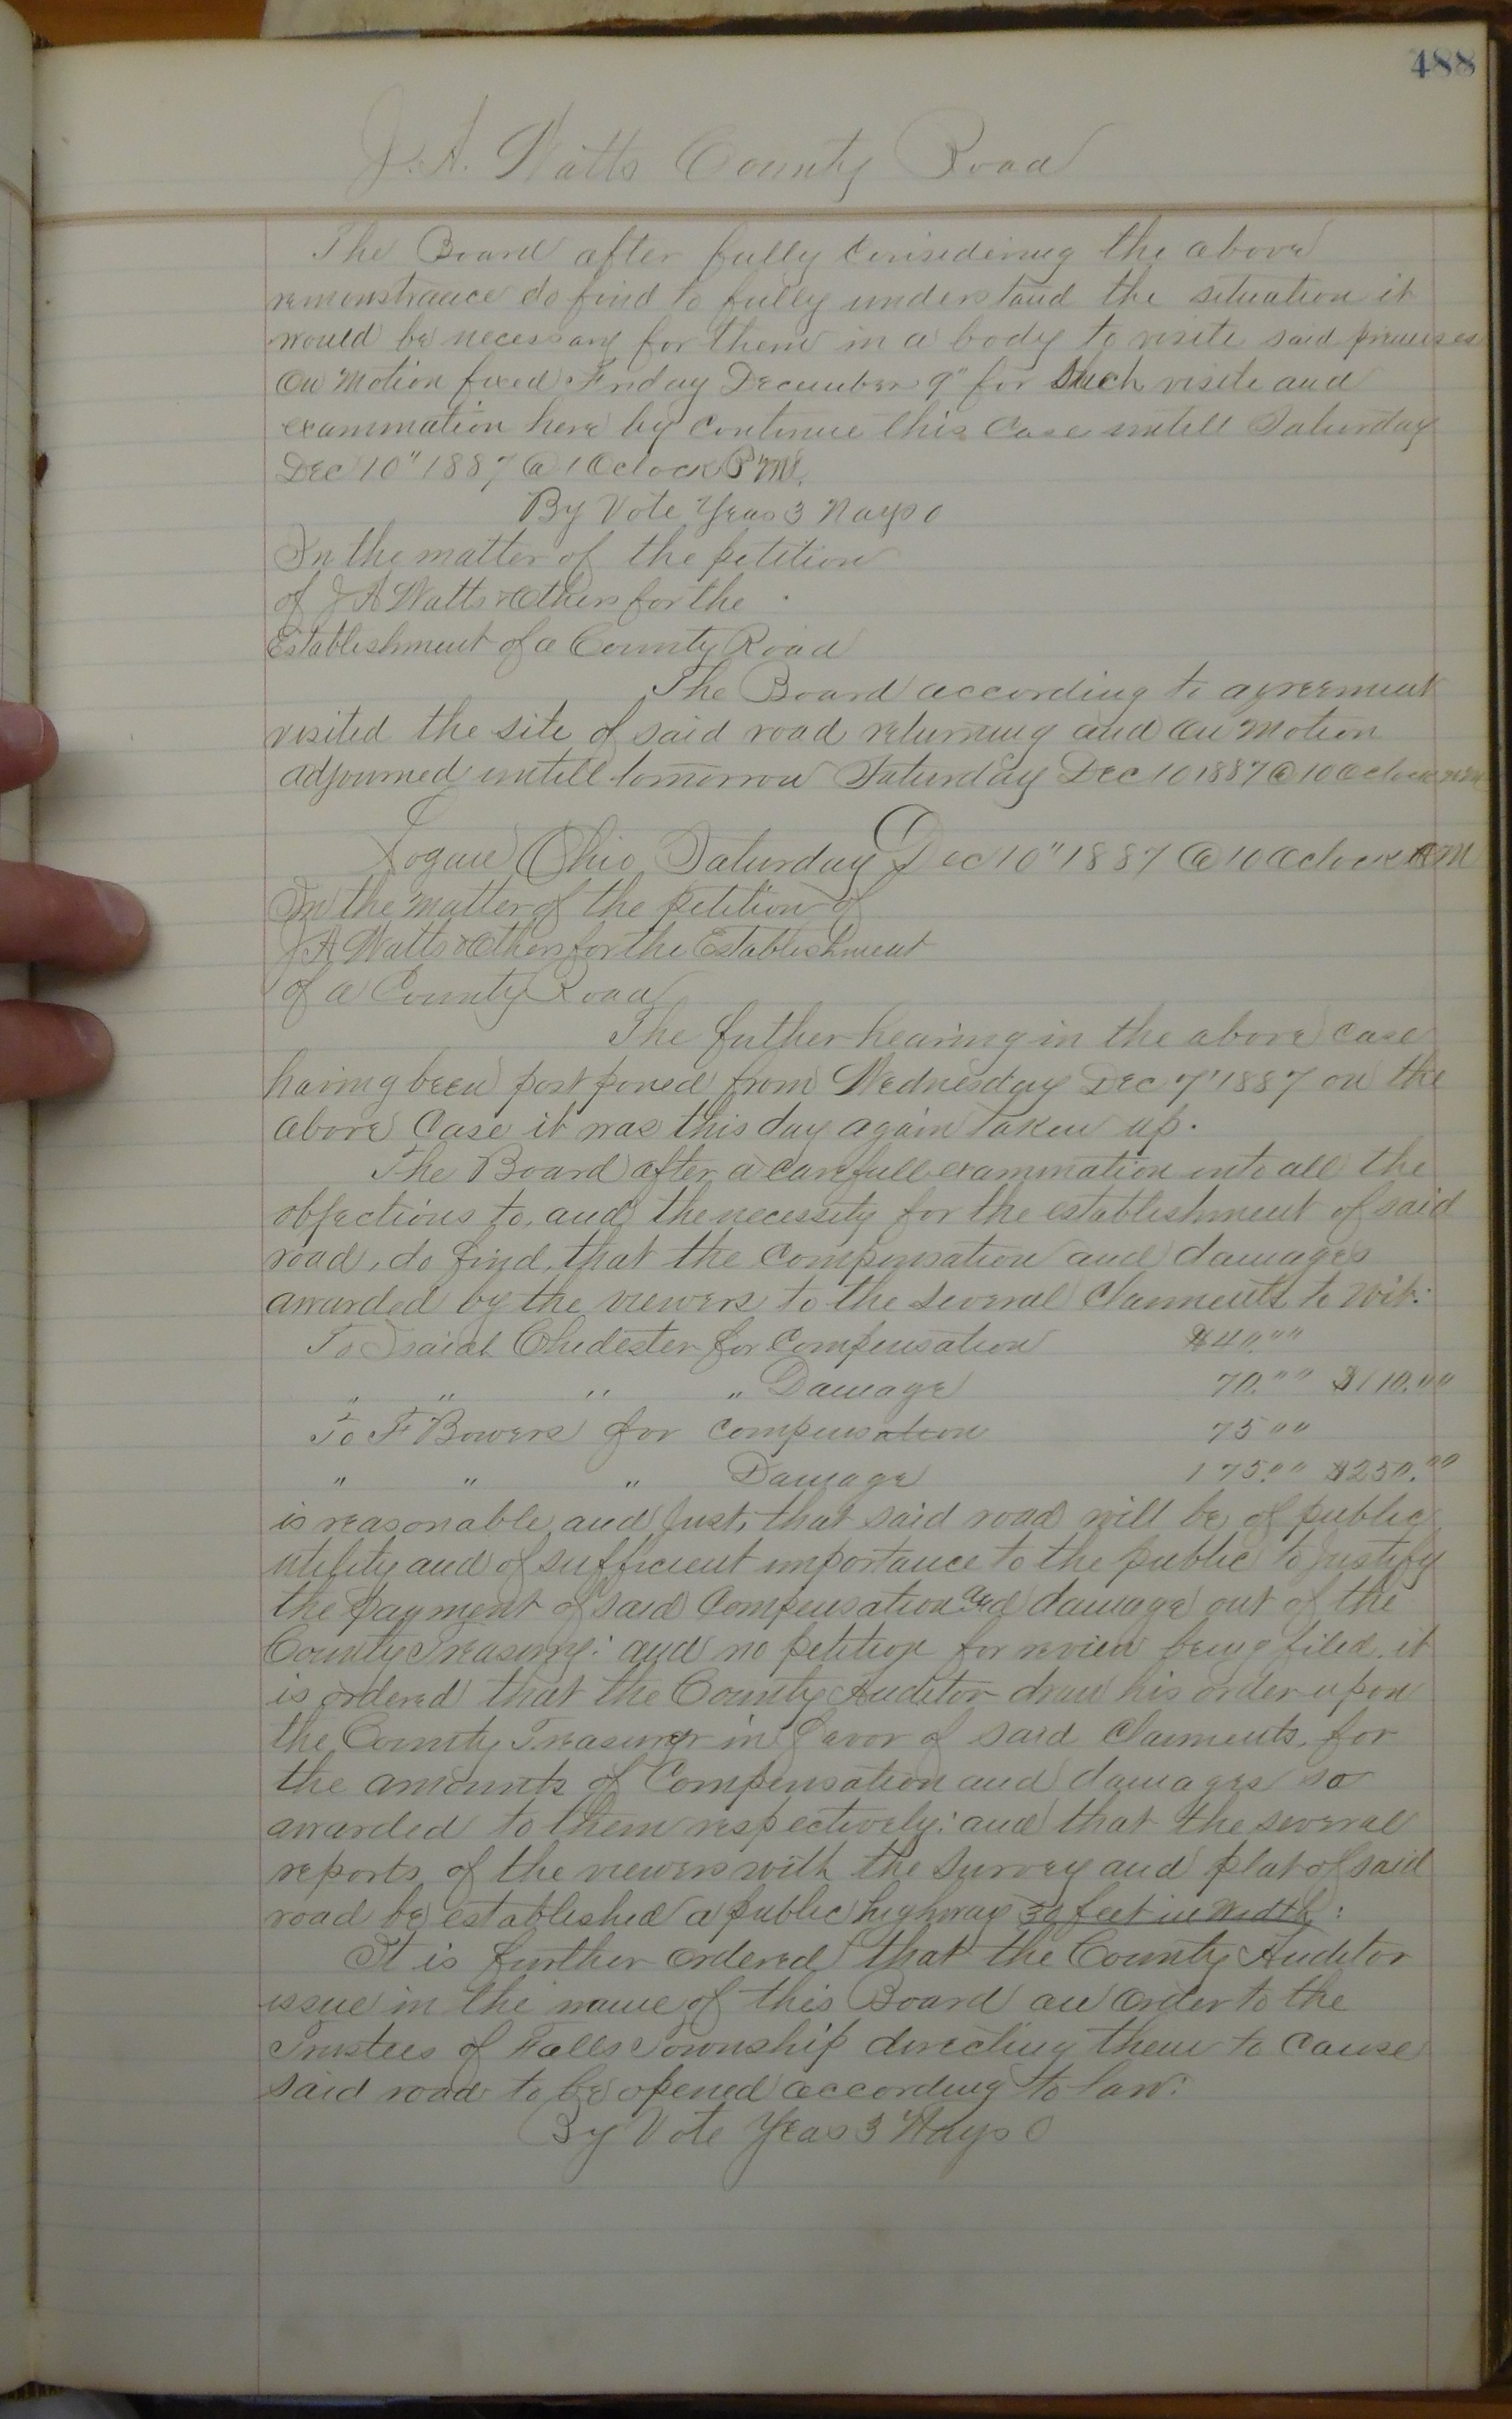 488
J. A. Watts County Road
The Board after fully considering the above
remonstrance do find to fully understand the situation it
would be necessary for them in a body to visite said premises
On Motion fixed Friday December 9" for Such visite and
examination here by Continue this Case untill Saturday
Dec 10" 1887 @ 1 Oclock P.M.
By Vote Yeas 3 Nays 0
In the matter of the petition
of J A Watts & Others for the
Establishment of a County Road
The Board according to agreement
visited the site of said road returning and on Motion
adjourned untill tomorrow Saturday Dec 10 1887 @ 10 Oclock
Logan Ohio, Saturday Dec 10" 1887 @ 10 Oclock AM
In the Matter of the petition of
J A Watts & Others for the Establishment
of a County Road
The futher hearing in the above case
having been postponed from Wednesday Dec 7" 1887 on the
above Case it was this day again taken up.
The Board after a carefull examination into all the
objections to, and the necessity for the establishment of said
road, do find, that the Compensation and damages
awarded by the viewers to the Several Claiments to Wit:
To Isaiah Chidester for Compensation $40.""
" " " " Damage 70."" $110.""
To F Bowers for Compensation 75""
" " " Damage 175."" $250.""
is reasonable and Just, that said road will be of public
utility and of sufficient importance to the public to Justify
the payment of said Compensation and damage out of the
County Treasury: and no petition for review being filed, it
is ordered that the County Auditor draw his order upon
the County Treasurer in favor of said Claiments, for
the amounts of Compensation and damages so
awarded to them respectively: and that the several
reports of the viewers with the Survey and plat of said
road be established a public highway 30 feet in Width:
It is further ordered that the County Auditor
issue in the name of this Board an Order to the
Trustees of Falls Township directing them to Cause
said road to be opened according to law:
By Vote Yeas 3 Nays 0